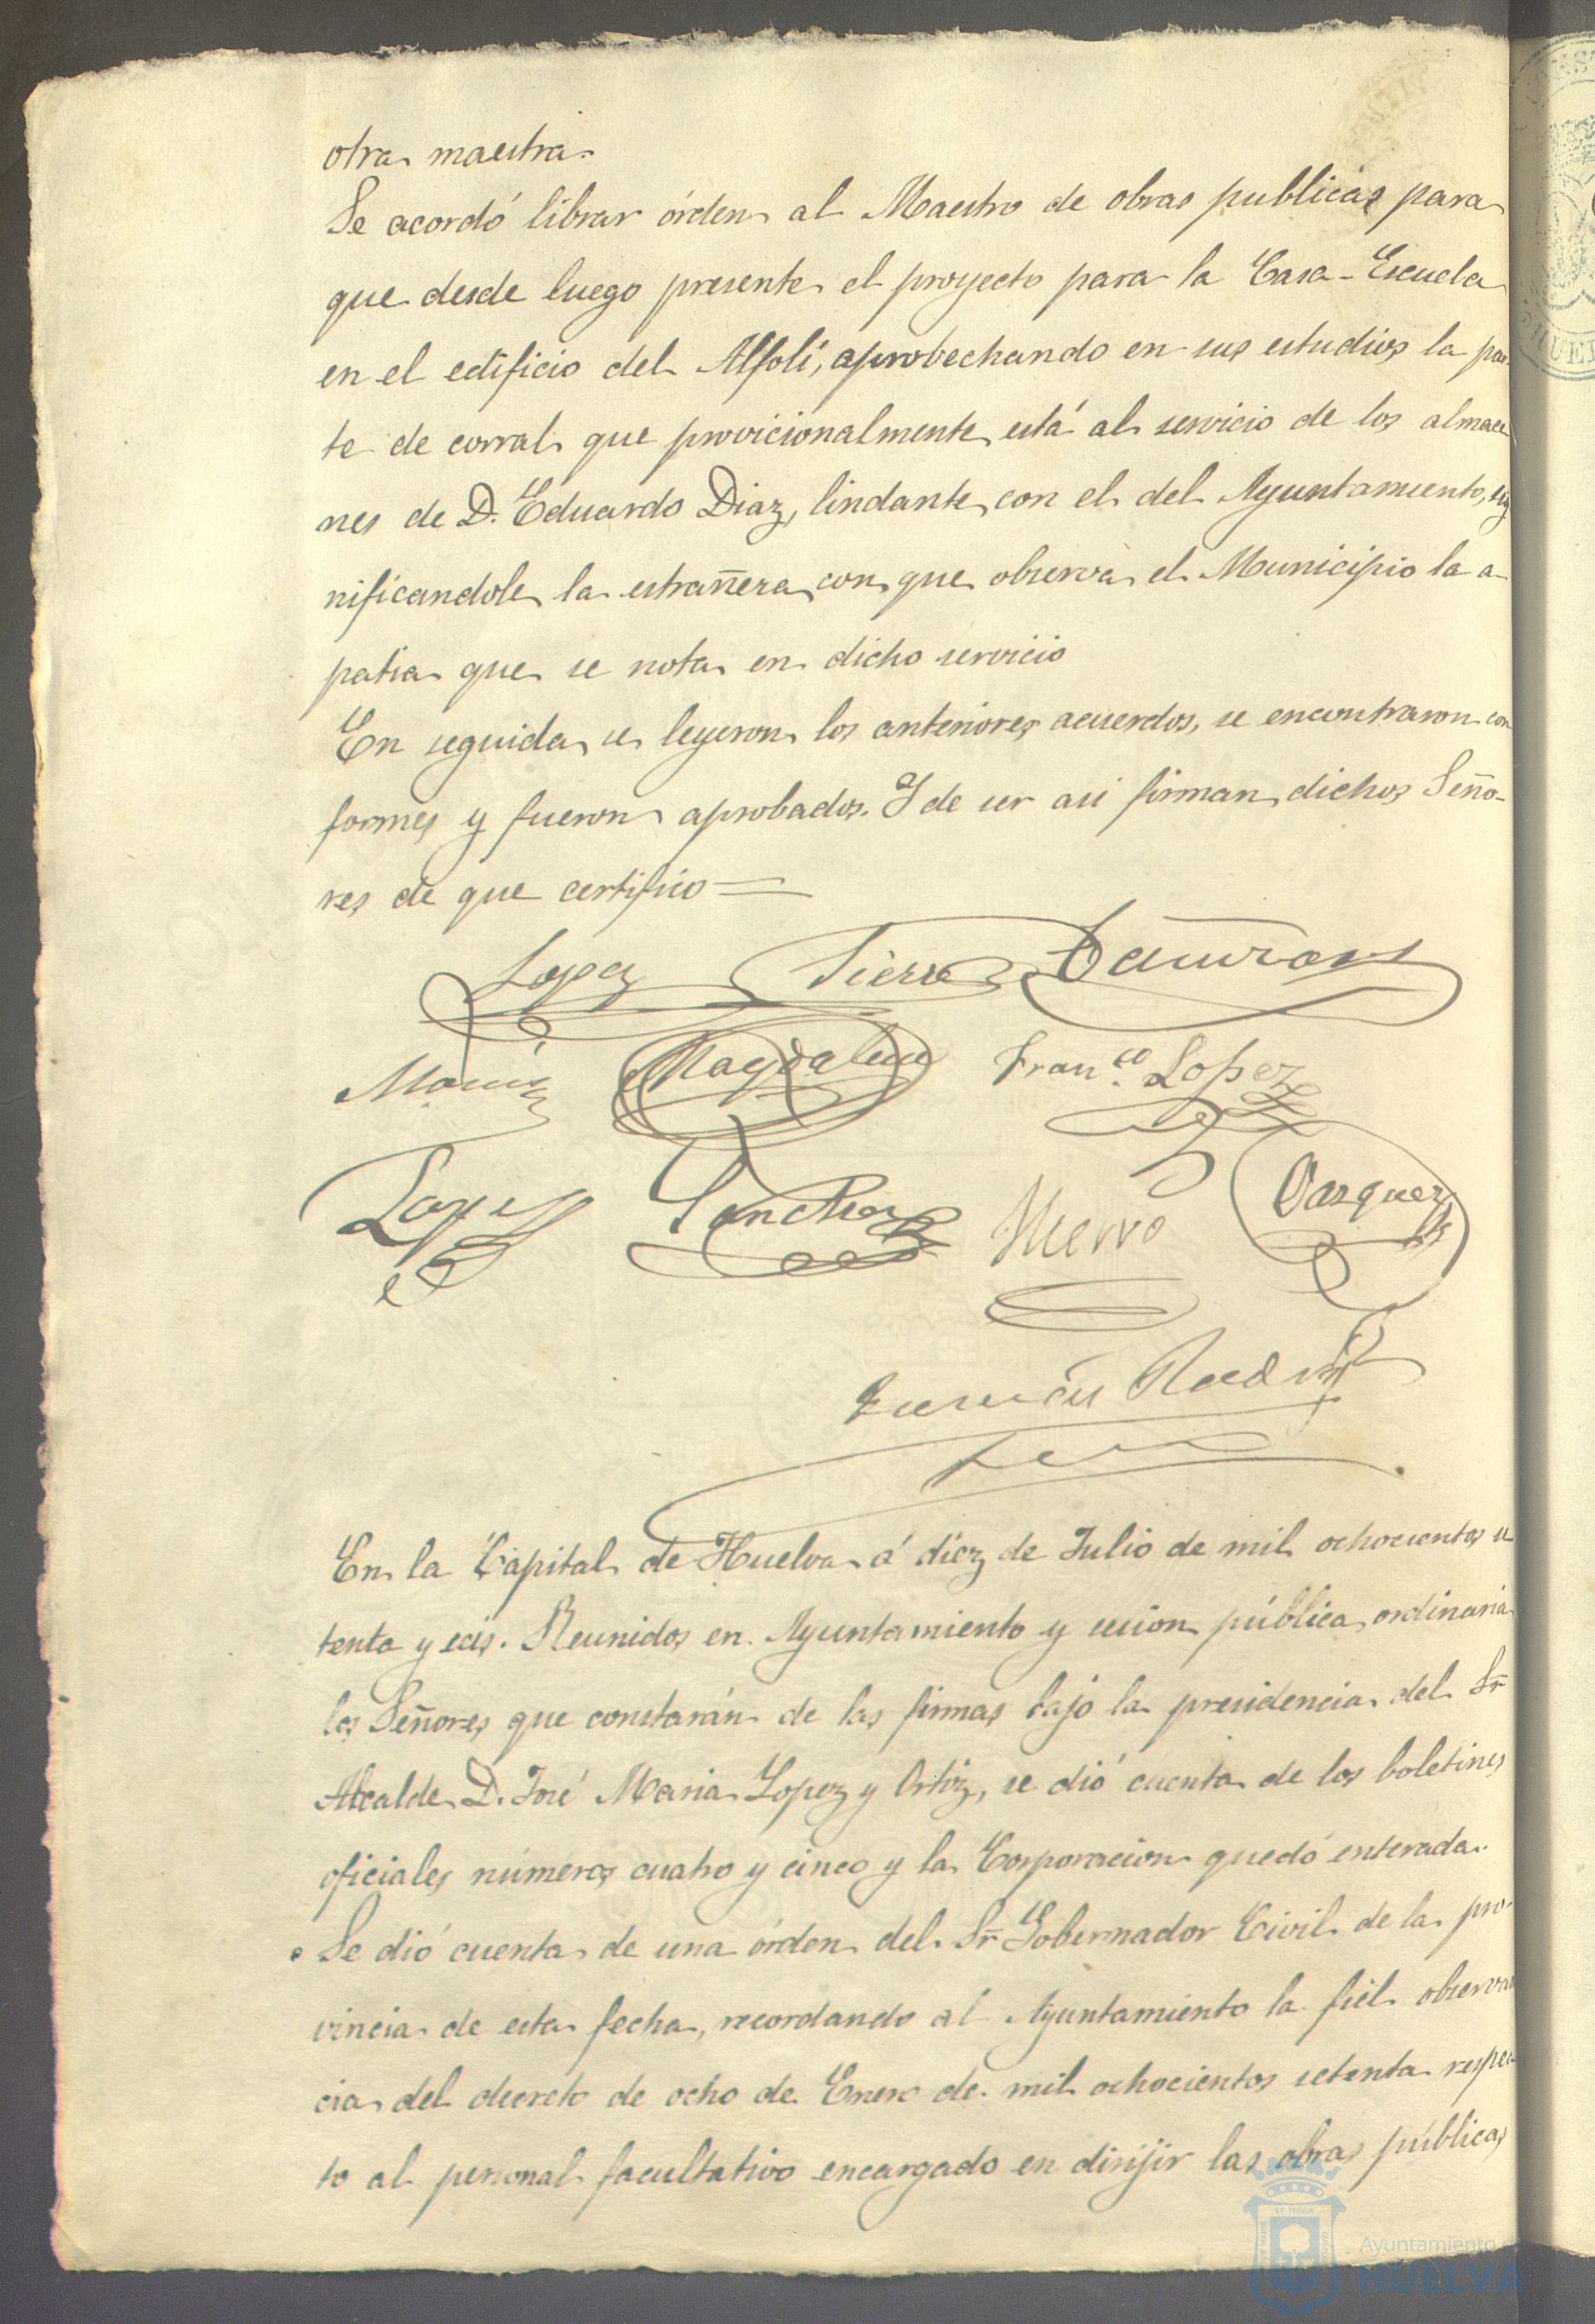 otra maestra.
Se acordó librar órden al Maestro de obras publicas para
que desde luego presente el proyecto para la Casa-Escuela
en el edificio del Alfolí, aprobechando en sus estudios la par
te de corral que provicionalmente está al servicio de los almace
nes de D. Eduardo Diaz, lindante con el del Ayuntamiento, sig
nificandole la estrañera con que observa el Municipio la a-
patia que se nota en dicho servicio
En seguida se leyeron los anteriores acuerdos, se encontraron con
formes y fueron aprobados. Y de ser asi firman dichos Seño-
res de que certifico=
Lopez Tierra
Magdalena Fran.co Lopez
Lopez Sanchez Hierro Vazquez
En la Capital de Huelva á diez de Julio de mil ochocientos se
tenta y seis. Reunidos en Ayuntamiento y sesion pública ordinaria
los Señores que constarán de las firmas bajo la presidencia del Sr
Alcalde D. José Maria Lopez y Ortiz, se dió cuenta de los boletines
oficiales números cuatro y cinco y la Corporacion quedó enterada.
Se dió cuenta de una órden del Sr Gobernador Civil de la pro-
vincia de esta fecha, recordando al Ayuntamiento la fiel observan
cia del decreto de ocho de Enero de mil ochocientos setenta respec
to al personal facultativo encargado en dirijir las obras públicas
Ayuntamiento
HUELVA